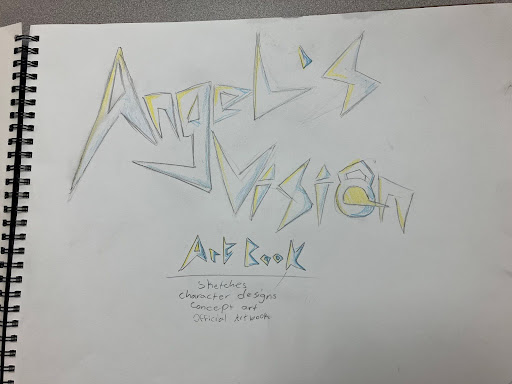 Angel's
Vision
Art Book
Sketches
character designs
Concept art
Official Artworks